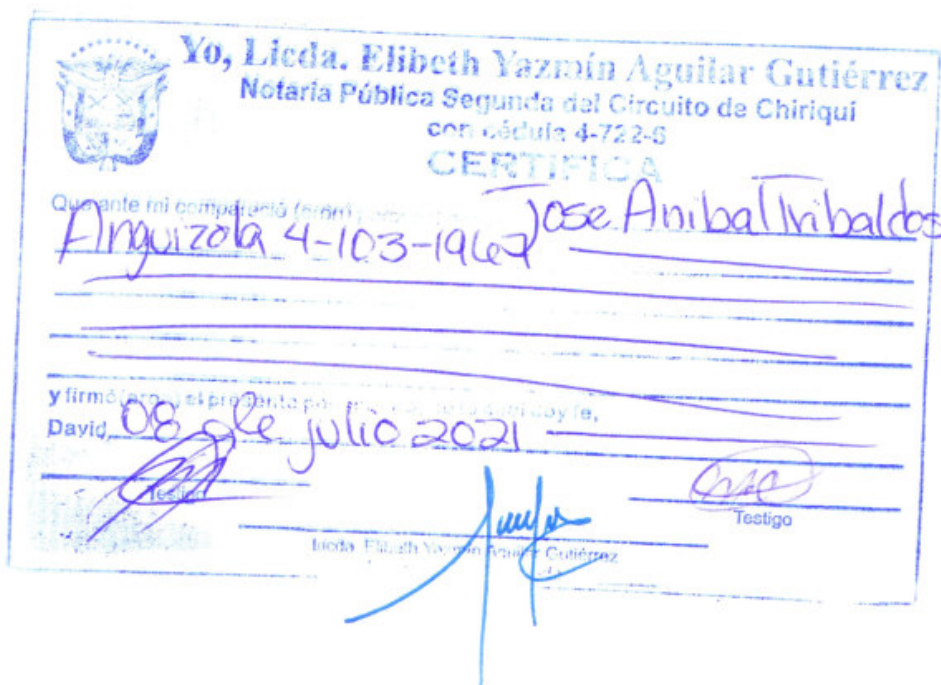 Yo, Licda. Elibeth Yazmín Aguilar Gutiérrez
Notaria Pública Segunda del Circuito de Chiriquí
con cédula 4-722-6
CERTIFICA
Que ante mi compareció (eron) Jose Anibal Tribaldos
Anguizola 4-103-1962
y firmó (aron) el presente doy fe,
David, 08 de julio 2021
Testigo
Testigo
Licda. Elibeth Yazmín Aguilar Gutiérrez